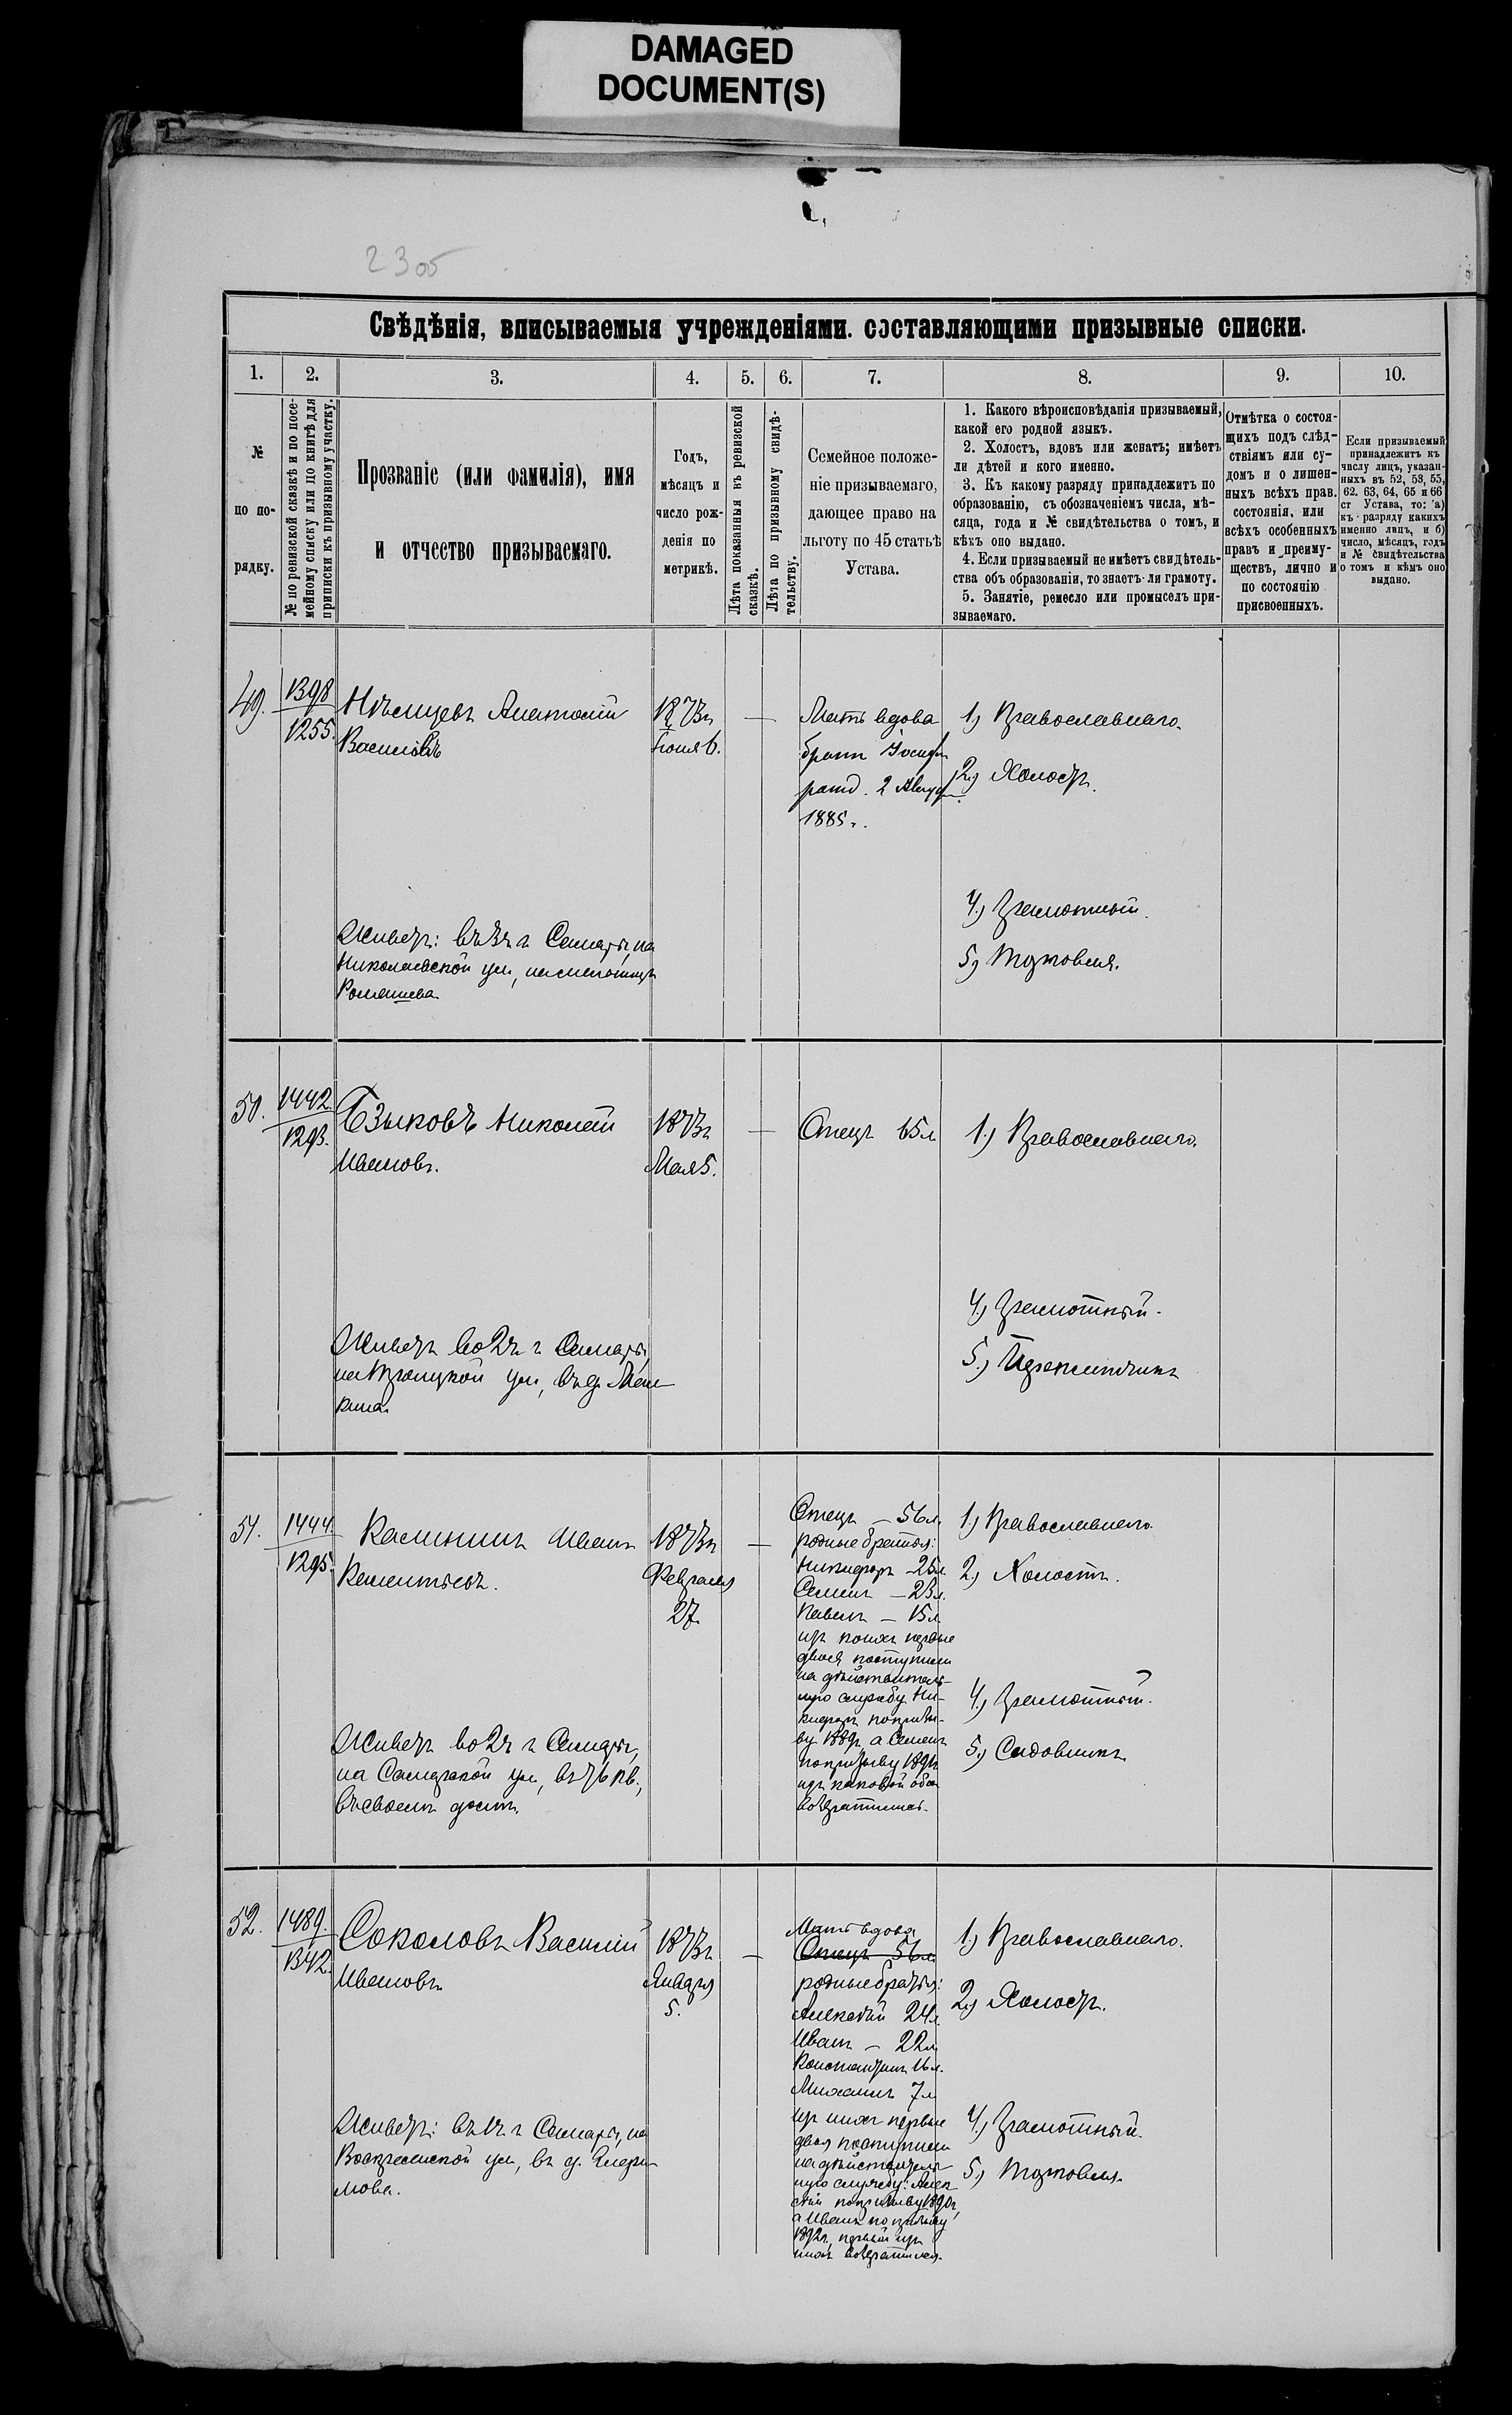 DAMAGED
DOCUMENT(S)
2305
Свѣдѣнія, вписываемыя учрежденіями. составляющими призывные списки.
1. 2. 3. 4. 5. 6. 7. 8. 9. 10.
№
по по-
рядку.
№ по ревизской сказкѣ и по посе-
мейному списку или по книгѣ для
приписки къ призывному участку.
Прозваніе (или фамилія), имя
и отчество призываемаго.
Годъ,
мѣсяцъ и
число рож-
денія по
метрикѣ.
Лѣта показанныя въ ревизской
сказкѣ.
Лѣта по призывному свидѣ-
тельству.
Семейное положе-
ніе призываемаго,
дающее право на
льготу по 45 статьѣ
Устава.
1. Какого вѣроисповѣданія призываемый,
какой его родной языкъ.
2. Холостъ, вдовъ или женатъ; имѣетъ
ли дѣтей и кого именно.
3. Къ какому разряду принадлежитъ по
образованію, съ обозначеніемъ числа, мѣ-
сяца, года и № свидѣтельства о томъ, и
кѣхъ оно выдано.
4. Если призываемый не имѣетъ свидѣтель-
ства объ образованіи, то знаетъ-ли грамоту.
5. Занятіе, ремесло или промыселъ при-
зываемаго.
Отмѣтка о состоя-
щихъ подъ слѣд-
ствіямъ или су-
домъ и о лишен-
ныхъ всѣхъ прав.
состоянія, или
всѣхъ особенныхъ
правъ и преиму-
ществъ, лично и
по состоянію
присвоенныхъ.
Если призываемый
принадлежитъ къ
числу лицъ, указан-
ныхъ въ 52, 53, 55,
62. 63, 64, 65 и 66
ст Устава, то: а)
къ разряду какихъ
именно лицъ, и б)
число, мѣсяцъ, годъ
и № свидѣтельства
о томъ и кѣмъ оно
выдано.
49.
1398
1255.
Нѣмцевъ Анатолій
Васильевъ
1873г
Іюля 6.
—
Мать вдова
братъ Іосифъ
ротд. 2 Август
1885 г.
1.) Православнаго.
2.) Холостъ.
4.) Грамотный.
5.) Торговля.
Живетъ: въ 3ч г Самары, на
Николаевской ул,
50.
1442.
1293.
Языковъ Николай
Ивановъ.
1873г
Мая 5.
—
Отецъ 65 л
1.) Православнаго.
4.) Грамотный.
Живетъ во 2ч г Самары,
на Троицкой ул, въ д.
51.
1444.
1295.
Калининъ Иванъ
Клементьевъ.
1873г
Февраля
27.
—
Отецъ — 56 л.
родные братья:
Никифоръ — 25 л
Семенъ — 23 л.
Павелъ — 15 л
изъ коихъ первые
двое поступили
на дѣйствитель-
ную службу Ни-
кифоръ по призы-
ву 1889г, а Семенъ
по призыву 1891г
изъ каковой оба
возвратились.
1.) Православнаго.
2.) Холостъ.
4.) Грамотный.
5.) Садовникъ
Живетъ во 2ч г Самары,
на Самарской ул, въ 76 кв.,
въ своемъ домѣ.
52.
1489.
1342.
Соколовъ Василій
Ивановъ
1873г
Января
5.
—
Мать вдова
Отецъ 56 л.
родные братья:
Алексѣй 24 л.
Иванъ — 22 л.
Константинъ 16 л.
Михаилъ 7 л
изъ нихъ первые
двое поступили
на дѣйствитель-
ную службу: Алек
сѣй по призыву 1890г,
а Иванъ по призыву
1892г, первый изъ
нихъ возвратился.
1.) Православнаго.
2.) Холостъ.
4.) Грамотный.
5.) Торговля.
Живетъ: въ 1ч г Самары, на
Воскресенской ул, въ д.